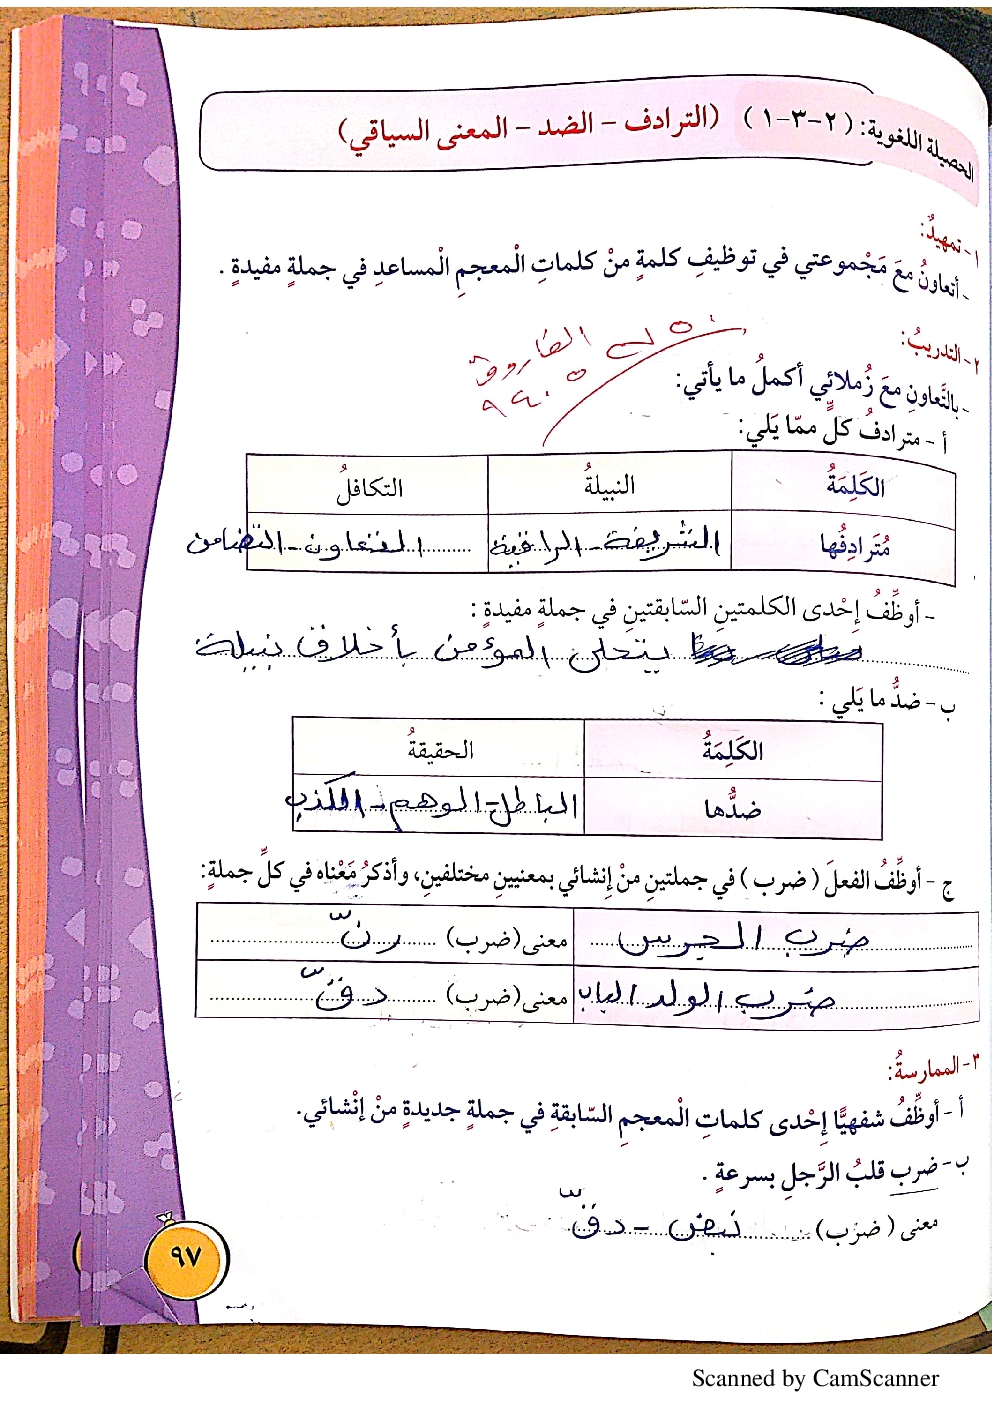 الحصيلة اللغوية: (٢-٣-١) (الترادف - الضد - المعنى السياقي)
١- تمهيدٌ:
- أتعاونُ معَ مَجْموعتي في توظيفِ كلمةٍ منْ كلماتِ الْمعجمِ الْمساعدِ في جملةٍ مفيدةٍ .
٢- التدريبُ:
- بالتَّعاونِ معَ زُملائي أكملُ ما يأتي:
أ - مترادفُ كلٍّ ممّا يَلي:
الكَلِمَةُ النبيلةُ التكافلُ
مُتَرادِفُها الشريفة - الراقية التعاون - التضامن
- أوظِّفُ إحْدى الكلمتينِ السّابقتينِ في جملةٍ مفيدةٍ :
يتحلى المؤمن بأخلاق نبيلة
ب - ضدُّ ما يَلي :
الكَلِمَةُ الحقيقةُ
ضدُّها الباطل - الوهم - الكذب
ج - أوظِّفُ الفعلَ (ضرب) في جملتينِ منْ إنشائي بمعنيينِ مختلفينِ، وأذكرُ مَعْناه في كلِّ جملةٍ:
ضرب الجرس معنى (ضرب) رنّ
ضرب الولد الباب معنى (ضرب) دقّ
٣- الممارسةُ:
أ - أوظِّفُ شفهيًّا إحْدى كلماتِ الْمعجمِ السّابقةِ في جملةٍ جديدةٍ منْ إنْشائي.
ب- ضربَ قلبُ الرَّجلِ بسرعةٍ .
معنى ( ضرَب) نبض - دقّ
٩٧
Scanned by CamScanner